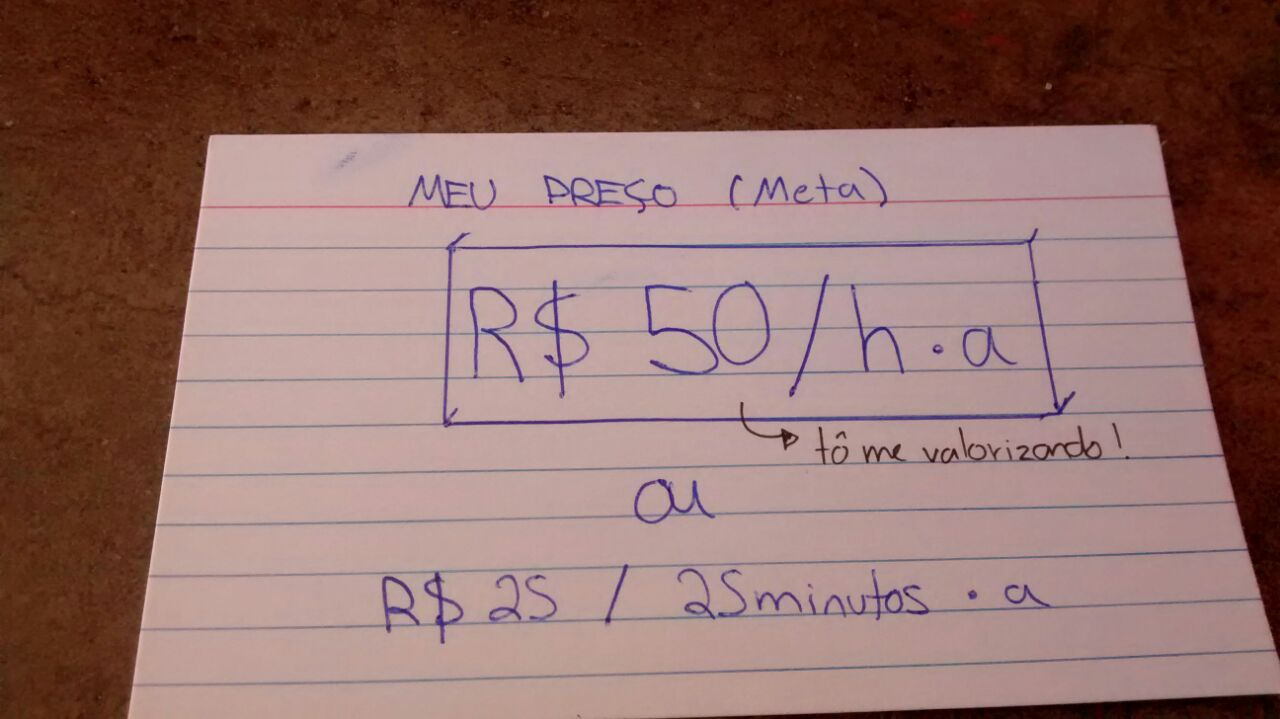 MEU PREÇO (Meta)
R$ 50/h.a
tô me valorizando!
ou
R$ 25 / 25minutos . a